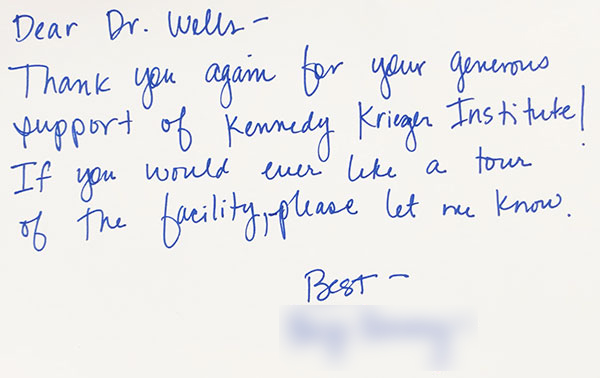 Dear Dr. Wells-
Thank you again for your generous
support of Kennedy Krieger Institute!
If you would ever like a tour
of the facility, please let me know.
Best-